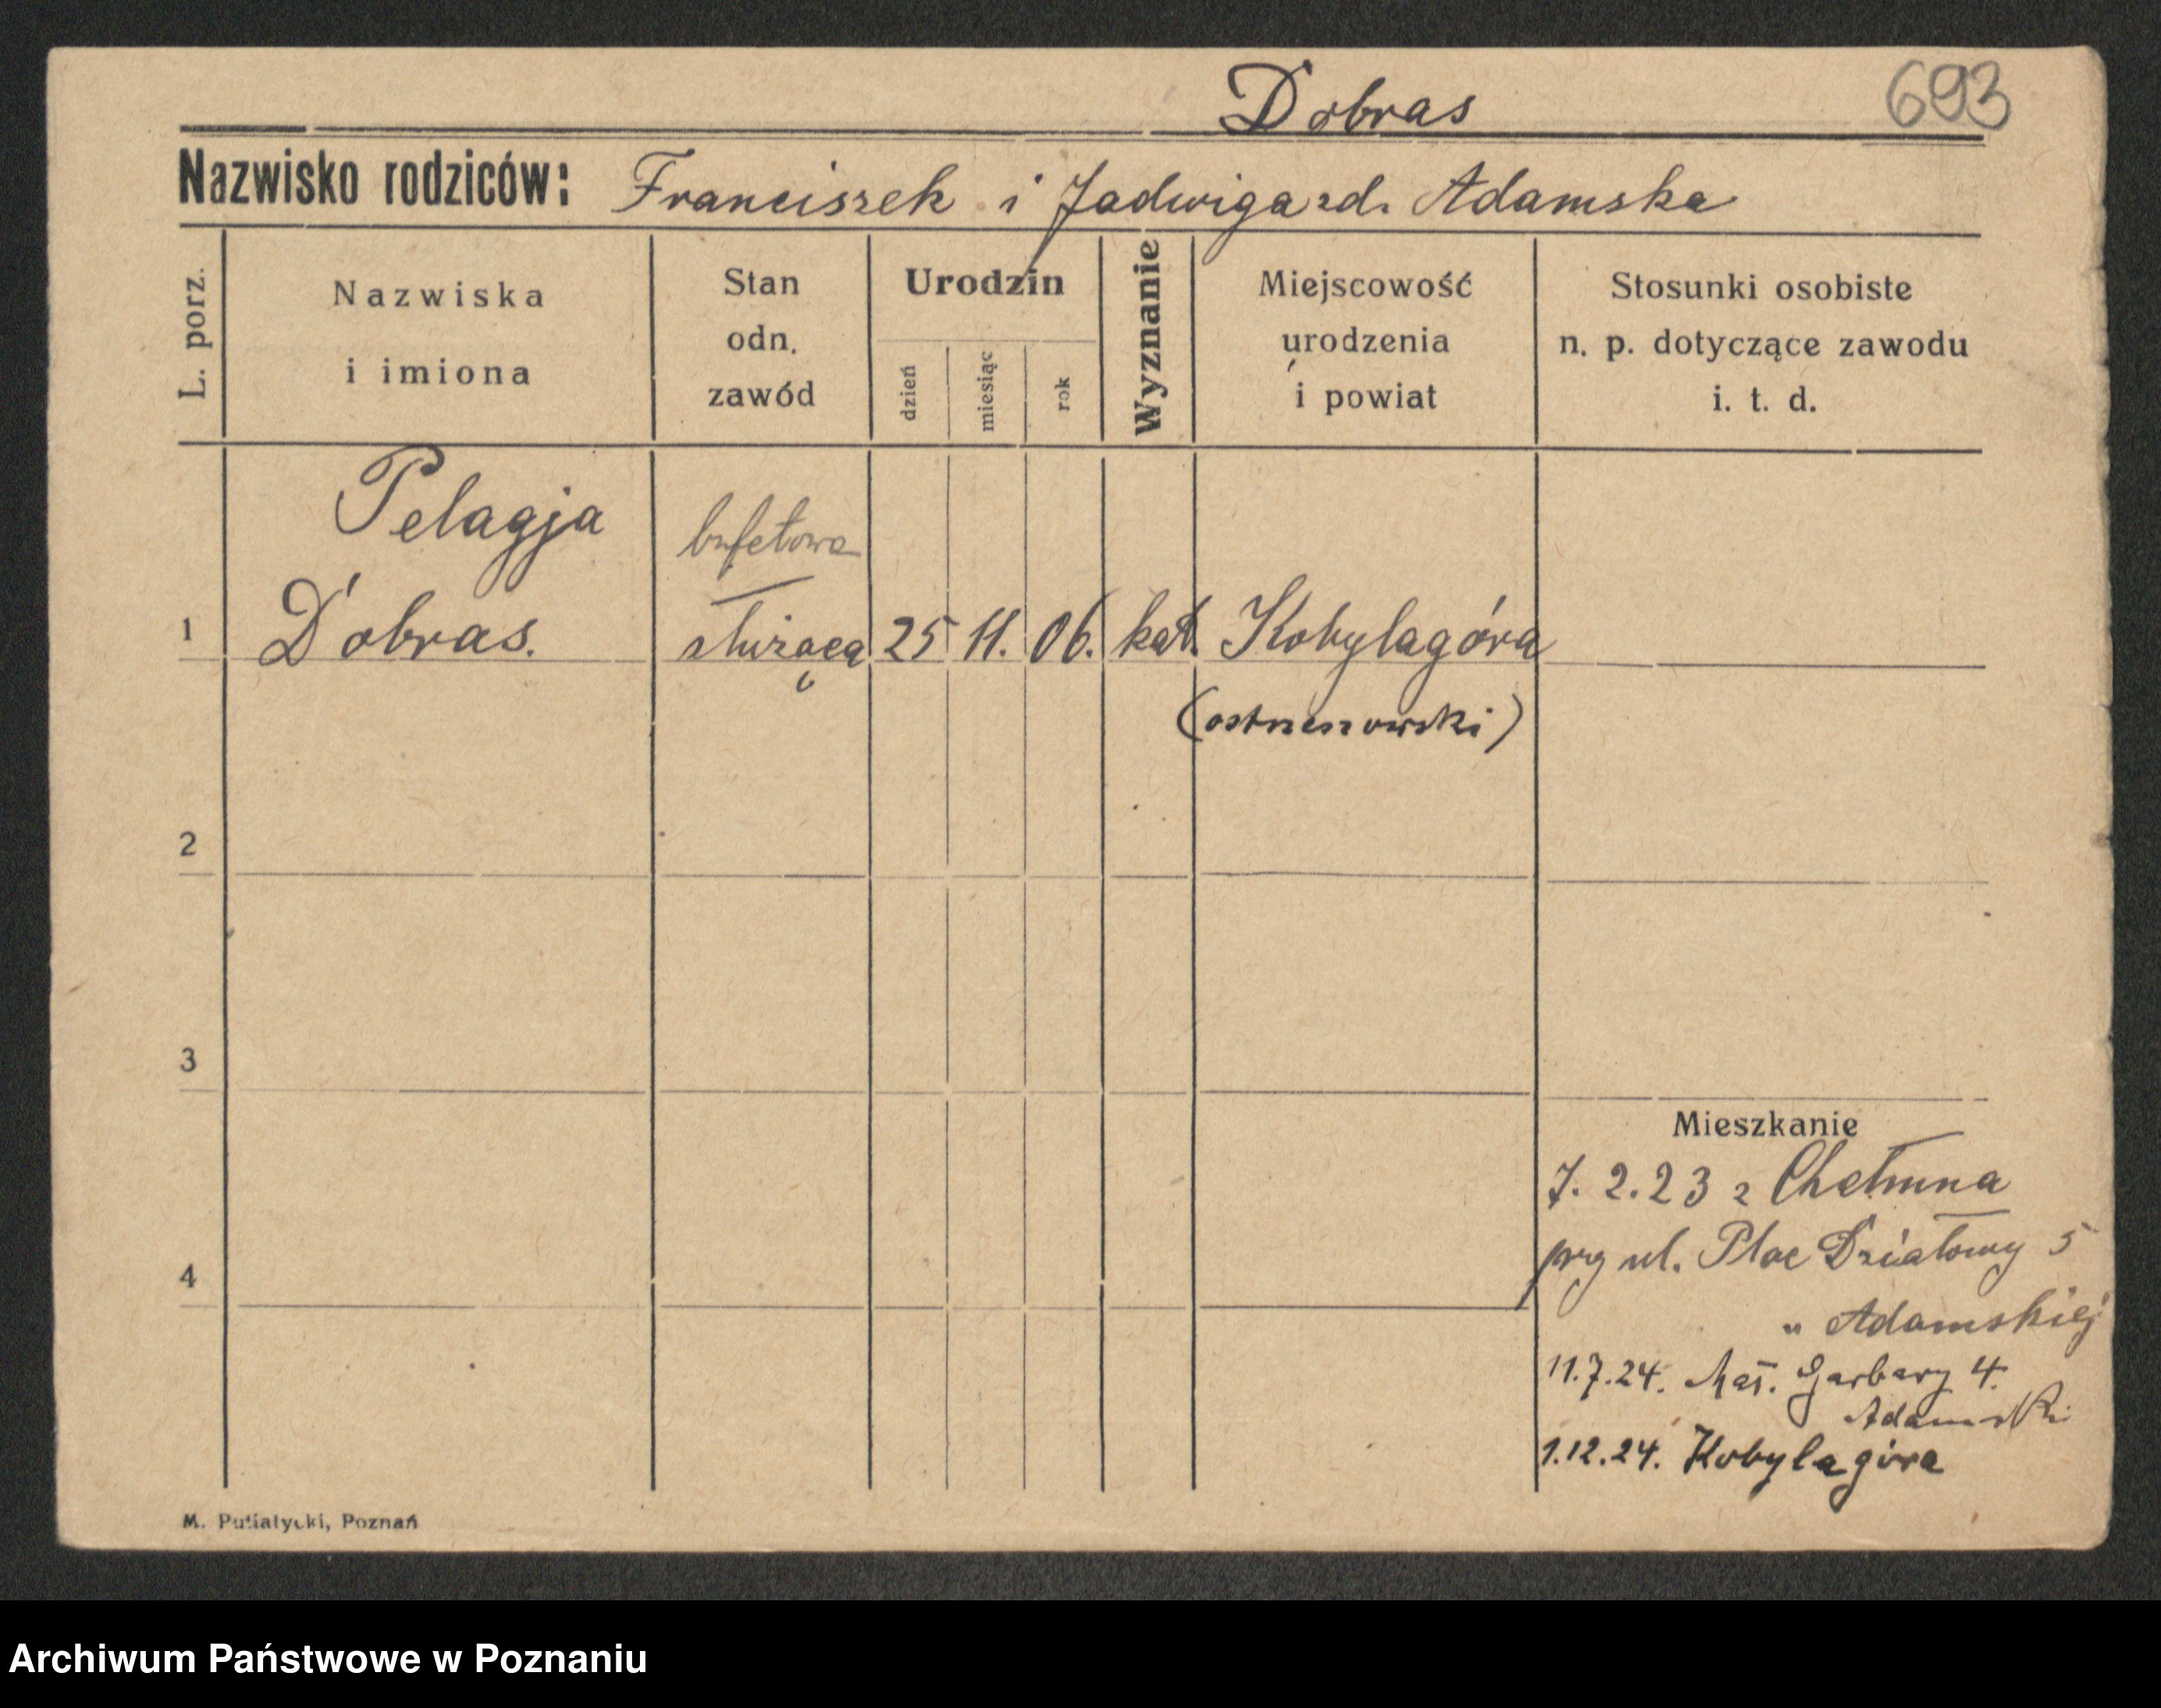 Dobras
693
Nazwisko rodziców: Franciszek i Jadwiga zd. Adamska
L. porz.
Nazwiska
i imiona
Stan
odn.
zawód
Urodzin
dzień
miesiąc
rok
Wyznanie
Miejscowość
urodzenia
i powiat
Stosunki osobiste
n. p. dotyczące zawodu
i. t. d.
Pelagja
bufetowa
1 Dobras. służąca 25 11. 06. kat. Kobylagóra
(ostrzeszowski)
2
3
4
Mieszkanie
7. 2. 23 z Chełmna
przy ul. Plac Działowy 5
u Adamskiej
11.7.24. Garbary 4.
Adamski
1.12.24. Kobylagóra
M. Putiatycki, Poznań
Archiwum Państwowe w Poznaniu